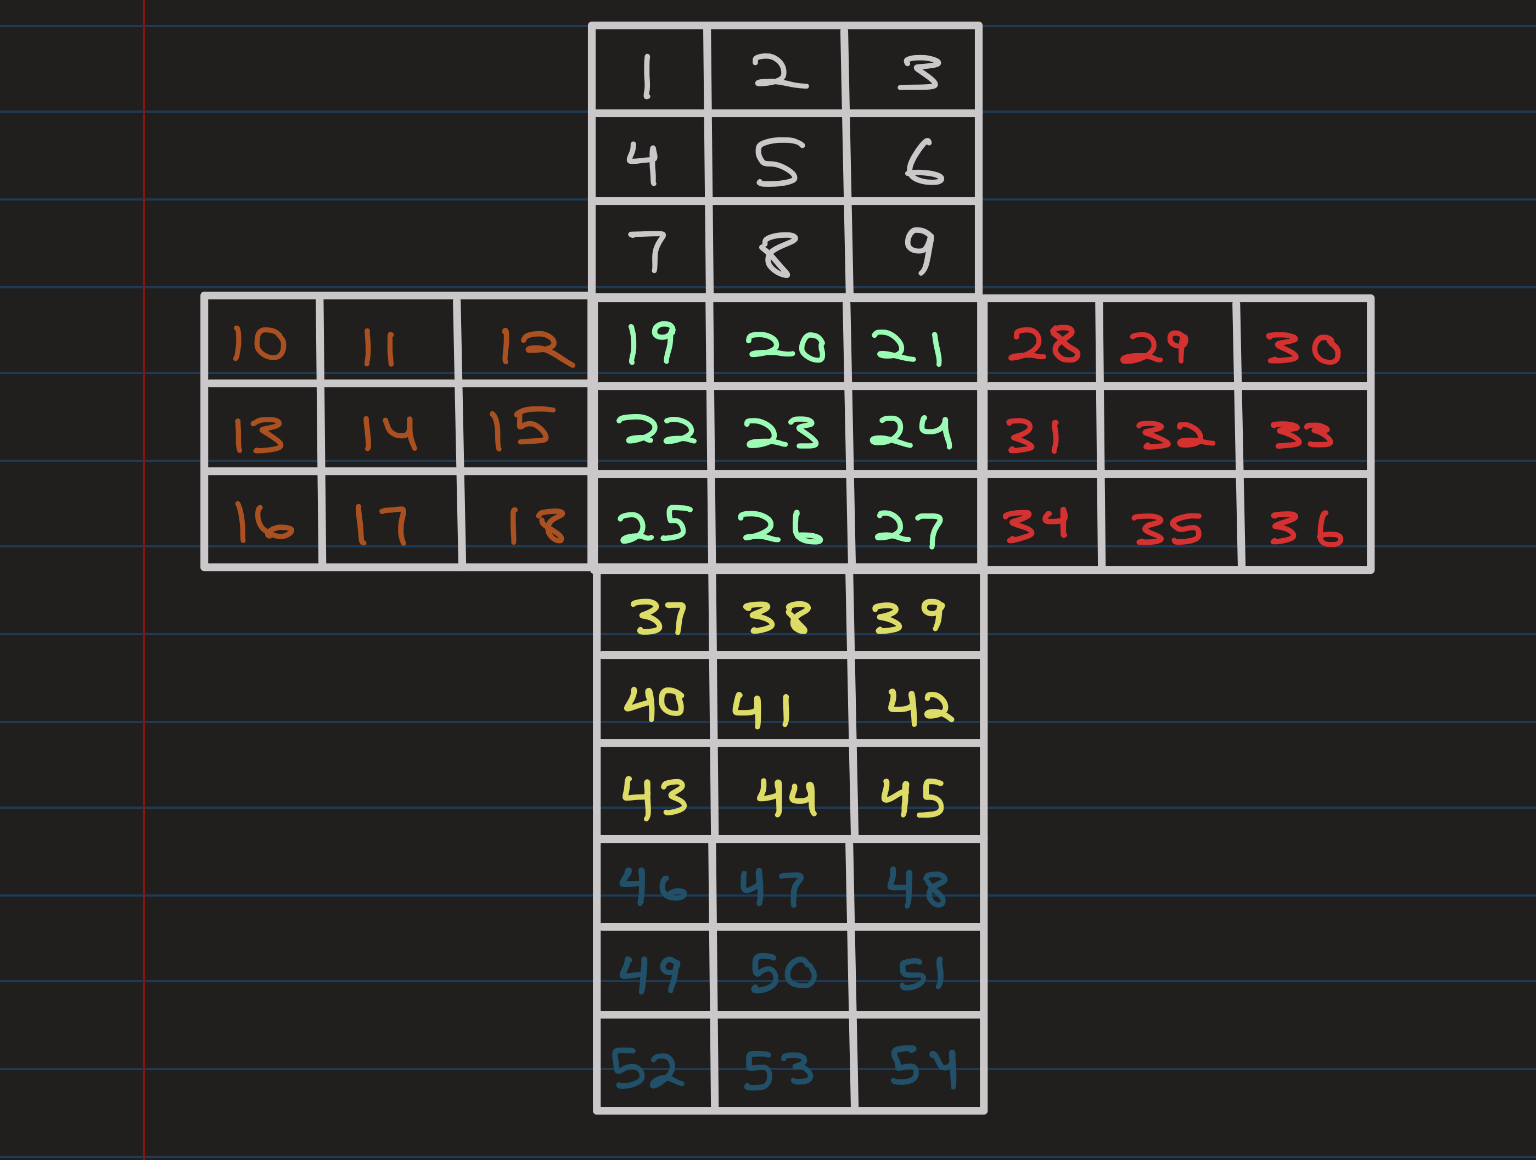 1 2 3
4 5 6
7 8 9
10 11 12 19 20 21 28 29 30
13 14 15 22 23 24 31 32 33
16 17 18 25 26 27 34 35 36
37 38 39
40 41 42
43 44 45
46 47 48
49 50 51
52 53 54